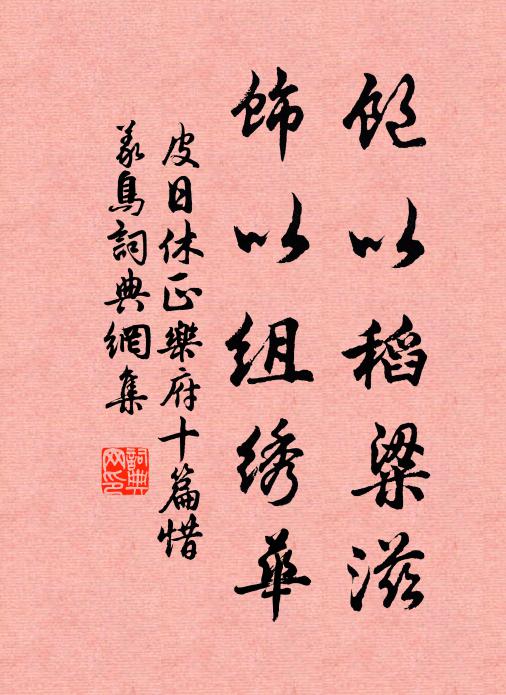 飽以稻粱滋
飾以組绣華
皮日休正樂府十篇惜
義鳥詞典網集
詞典
网印